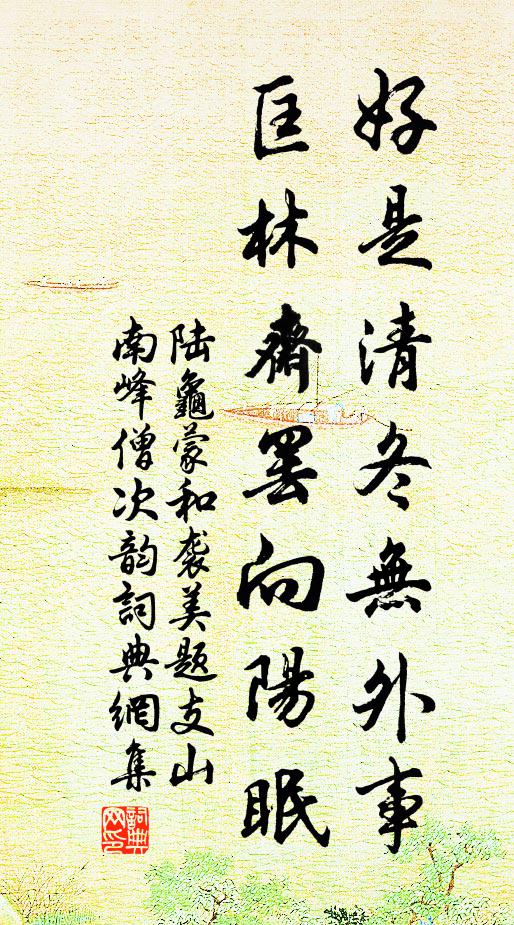 好是清冬無外事
匡林齋罷向陽眠
陸龜蒙和袭美题支山
南峰僧次韵詞典網集
詞典网印